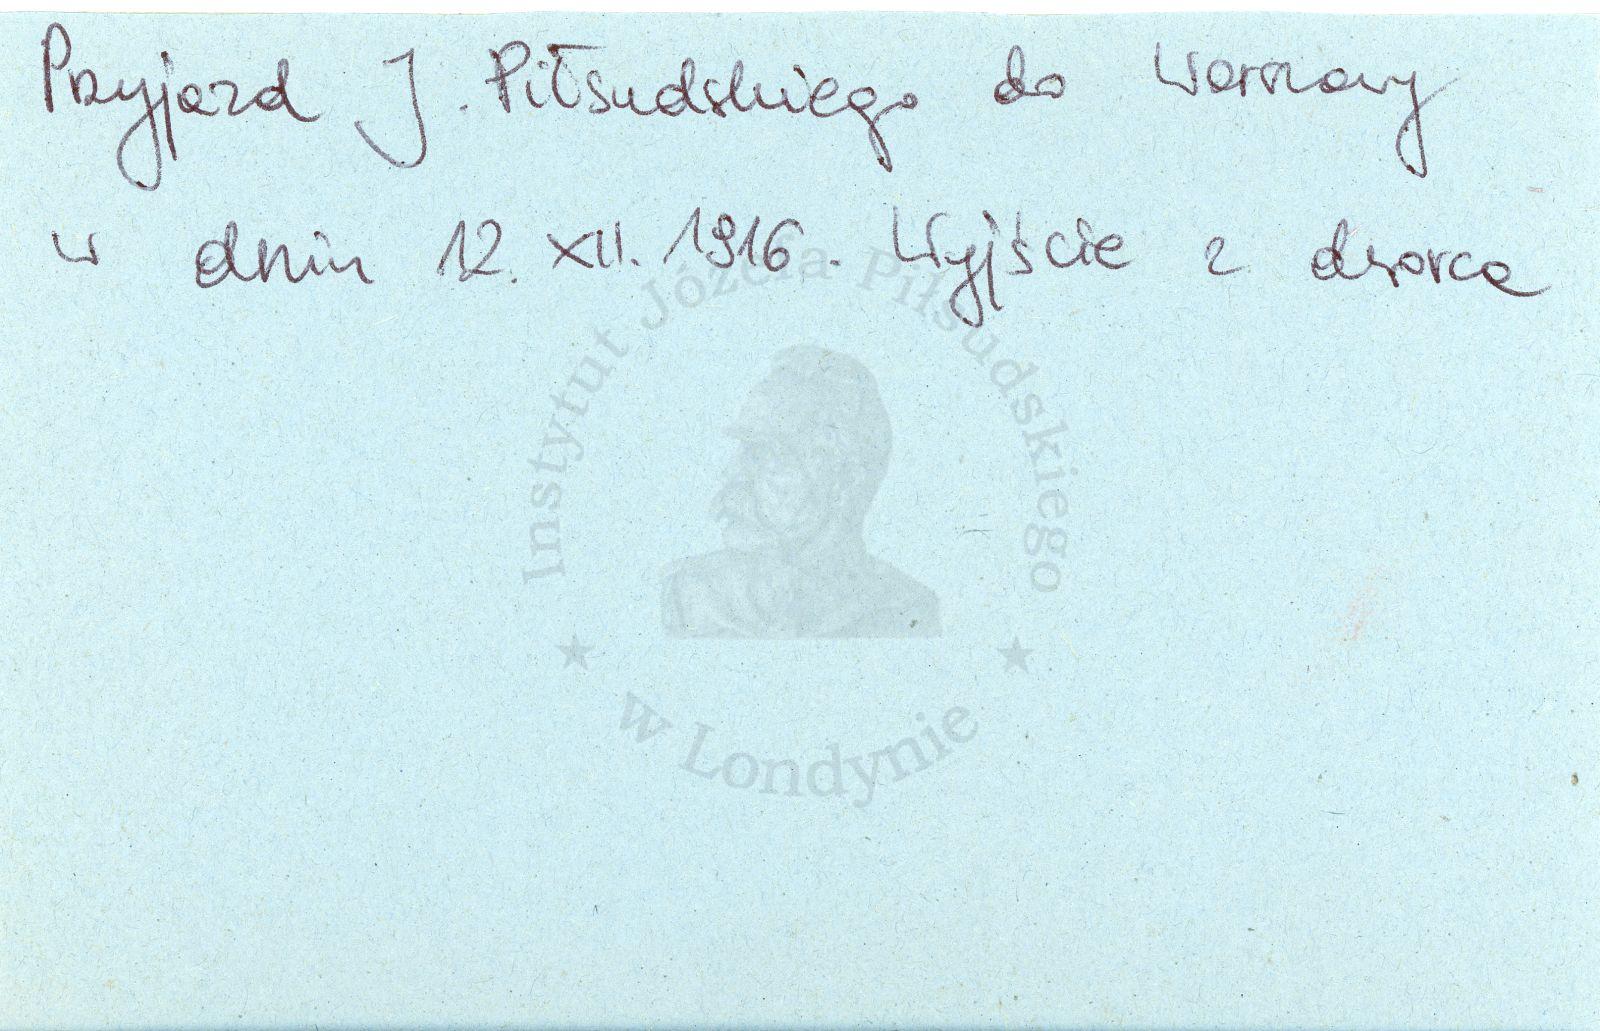 Przyjazd J. Piłsudskiego do Warszawy
w dniu 12. XII. 1916. Wyjście z dworca
Instytut Józefa Piłsudskiego
w Londynie